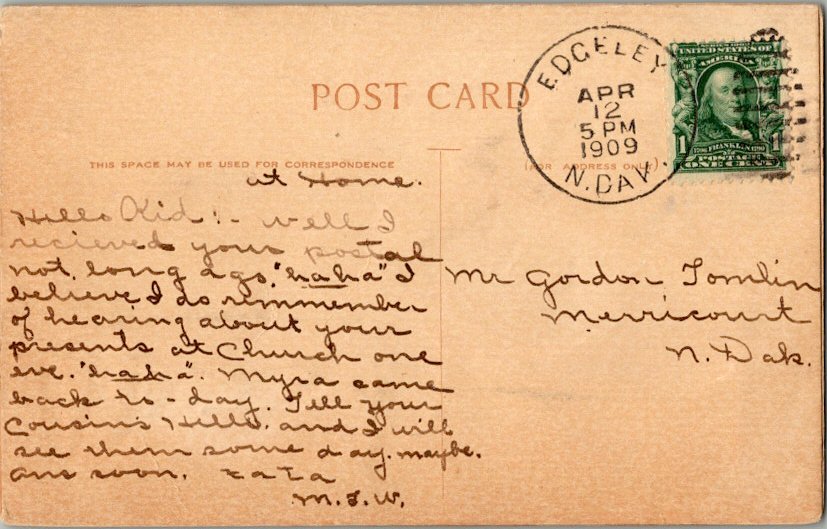 POST CARD
THIS SPACE MAY BE USED FOR CORRESPONDENCE
(FOR ADDRESS ONLY)
EDGELEY
APR
12
5 PM
1909
N. DAK.
SERIES 1902
UNITED STATES OF
AMERICA
1 1
FRANKLIN
POSTAGE
ONE CENT
at Home.
Hello Kid:- Well I
recieved your postal
not long ago. "haha" I
believe I do remmember
of hearing about your
presents at Church one
eve. "haha". Myra came
back to-day. Tell your
Cousins Hello, and I will
see them some day. maybe.
ans soon. tata
M.J.W.
Mr Gordon Tomlin
Merricourt
N. Dak.